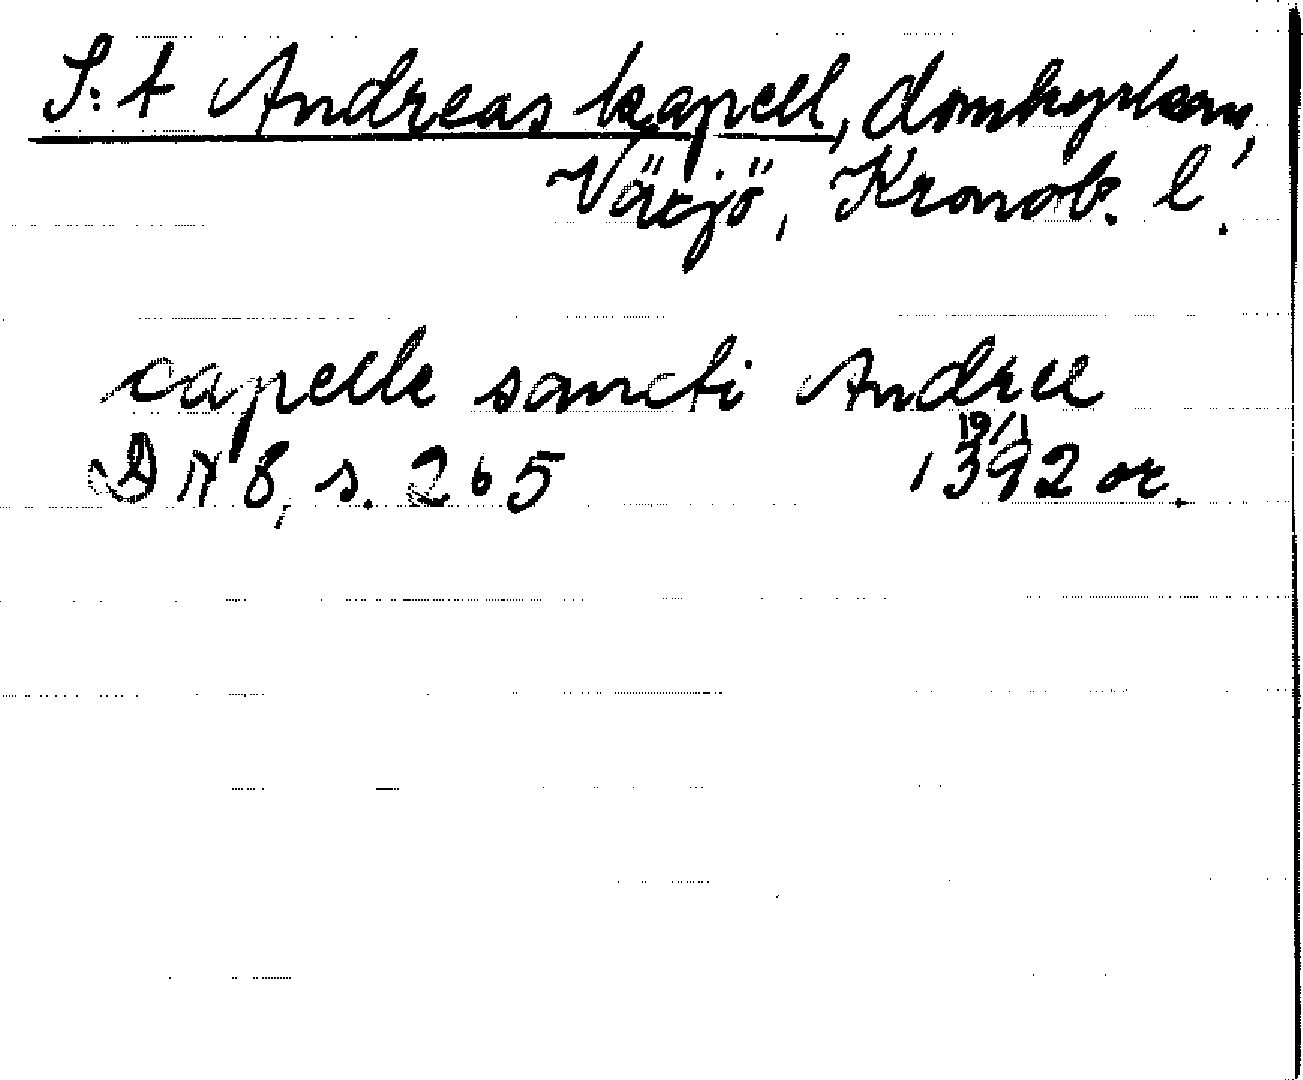 S:t Andreas kapell, domkyrkan,
Växjö, Kronob. l.
capelle sancti Andree
DN 8, s. 265 19/1 1392 or.